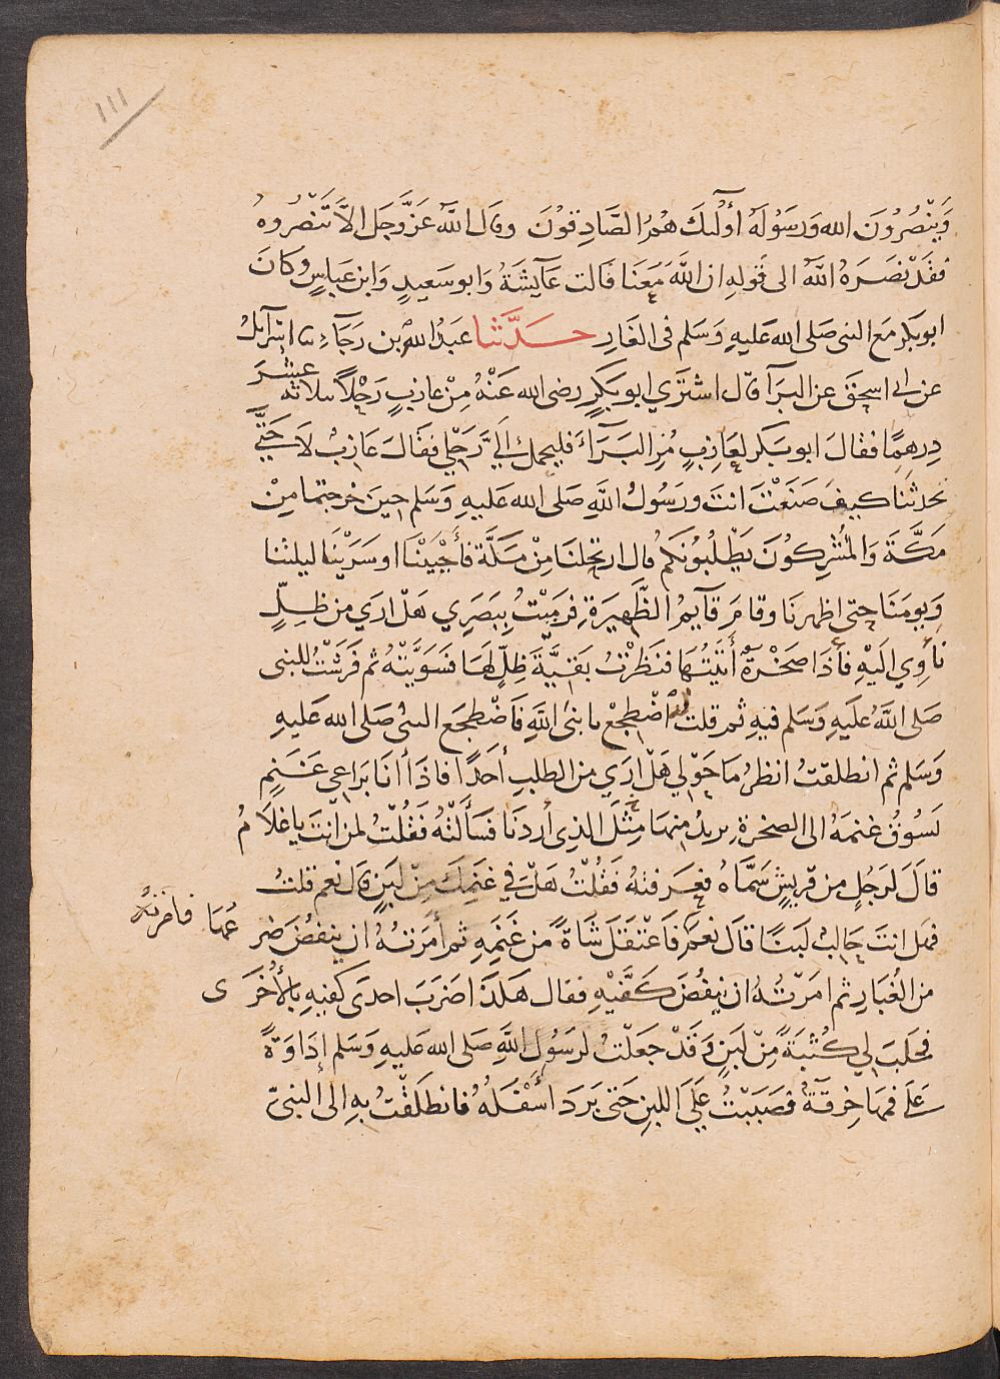 ١١١
وَيَنْصُرُونَ الله وَرَسُولَهُ أُولٰئكَ هُمُ الصَّادِقُونَ وقال اللهُ عَزَّوَجَل الاَّ تَنْصُروهُ
فقَدْ نَصَرَهُ اللهُ الى قَولِهِ ان اللهَ مَعَنَا قَالت عَآيشَةُ وَابو سَعِيدٍ وَابن عَباسٍ وكَانَ
ابوبَكر مَع النبى صَلى الله عَليهِ وَسَلم فى الغَارِ حَدَّثنا عَبدُ الله بن رَجَآءٍ ثنا اسْرآئيلُ
عن ابى اسحٰقَ عن البَرآ قال اشتَرَي ابو بَكرٍ رضى الله عَنْهُ مِنْ عَازبٍ رَحْلاً بثلاثه عَشَرَ
دِرهمًا فقالَ ابو بَكر لِعَازِبٍ مُرِ البَرَآءَ فليحمل اليَّ رَحْلِي فقَالَ عَازِبٌ لاَ حَتَّى
تحدثنَا كيفَ صَنَعْتَ انتَ ورَسُولُ اللهِ صَلى الله عَليهِ وَسَلم حِينَ خرجتما مِنْ
مَكَّةَ وَالمُشركُونَ يَطْلُبُونَكم قال ارتحلنَا مِنْ مَكَّةَ فأَحْيَيْنَا او سَرَيْنَا ليلتنا
وَيومَنَا حتى اظهرنَا وقامَ قآيمُ الظَّهِيرَةِ فرَمَيْتُ بِبَصَرِي هَلْ ارَي من ظِلٍّ
نَأوِي اليَهِ فَأذَا صَخْرَةٌ أَتَيْتُهَا فنَظَرْتُ بَقيَّةَ ظِلٍّ لهَا فسَوَيْتُهُ ثم فَرَشْتُ للنبى
صَلى اللهُ عَلَيهِ وَسَلم فيهِ ثم قلت له اضْطجِعْ يا نبىَ اللهِ فَاضْطجَع النبىُ صَلى الله عَليهِ
وَسَلم ثم انطلقتُ انظرُ مَا حَوْلي هَلْ ارَي من الطلبِ أحَدًا فاذَا أنَا برَاعِي غَنَمٍ
يَسُوقُ غنمَهُ الى الصخرةِ يريدُ منهَا مِثلَ الذِى أردنَا فسَأَلتُهُ فقُلْتُ لمن أنتَ يا غلاَمُ
قالَ لرَجُلٍ من قرَيشٍ سَمَّاهُ فعَرفتهُ فقُلْتُ هَلْ في غنَمِكَ مِنْ لبَنٍ قال نعم قلتُ
فهل انتَ حَالبٌ لَبَنًا قالَ نعم فاَعْتَقلَ شَاةً من غَنَمِهِ ثم أمَرْتهُ ان ينفُضَ ضر عُهَا فامرته
من الغُبَارِ ثم امَرْتهُ ان يَنفُضَ كَفَّيْهِ فقال هَكَذَا ضَرَبَ احدَى كفيهِ بالأُخرَى
فحَلبَ لي كُثْبَةً مِنْ لَبَنٍ وَقَدْ جَعَلْتُ لرَسُولِ اللهِ صَلى الله عَليهِ وَسَلم إِدَاوَةً
عَلَى فمهَا خِرقَةٌ فصَبَبْتُ عَلَى اللبن حَتى بَرَدَ أسْفَلُهُ فانطلَقْتُ بهِ الى النبىّ